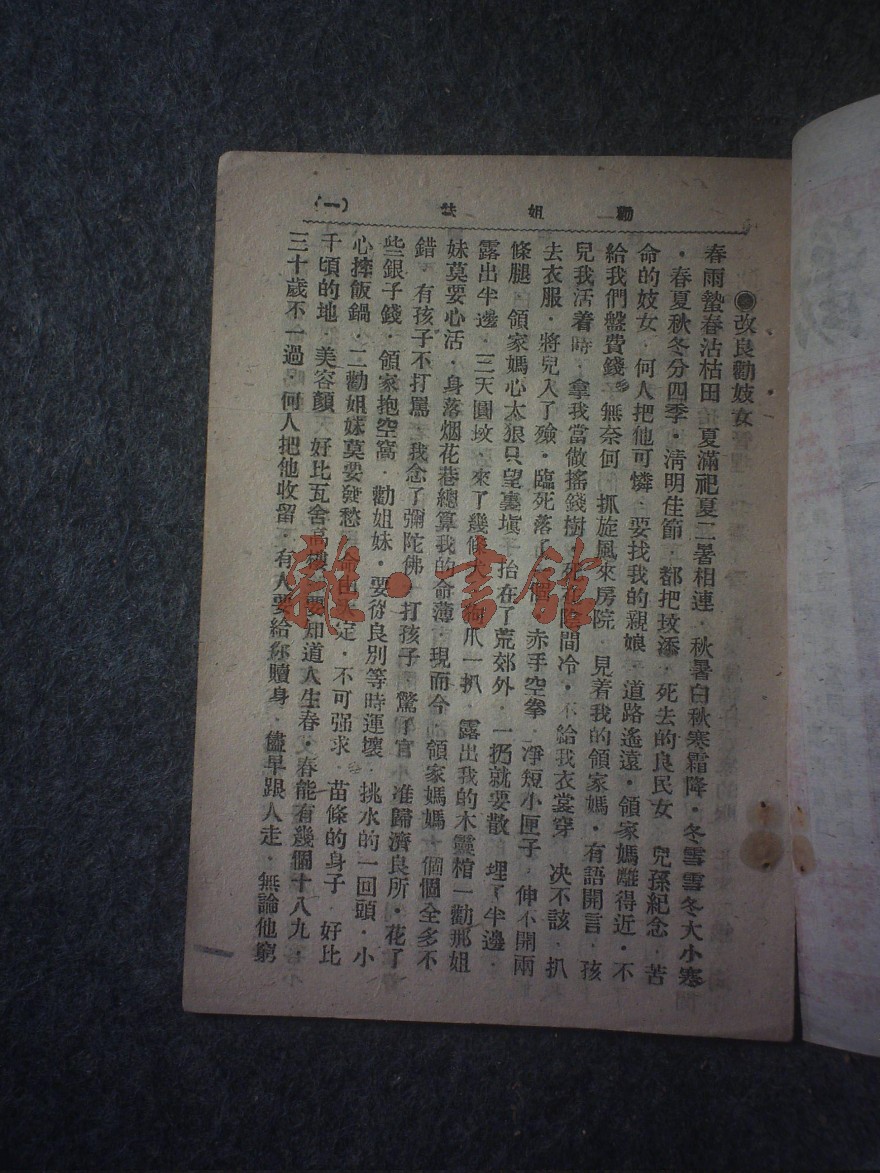 勸姐妓 (一)
●改良勸妓女
春雨蟄春沽枯田 夏滿祀夏二暑相連·秋暑白秋寒霜降·冬雪雪冬大小寒
·春夏秋冬分四季·清明佳節·都把坟添·死去的良民女 兒孫紀念·苦
命的妓女·何人把他可憐·要找我的親娘·道路遙遠·領家媽離得近·不
給我們盤費錢 無奈何 抓旋風來房院 見着我的領家媽·有語開言·孩
兒我活着時·拿我當做搖錢樹·死在陰間冷·不給我衣裳穿 决不該·扒
去衣服·將兒入了殮·臨死落了 赤手空拳 凈短小匣子·伸不開兩
條腿 領家媽心太狠只望 抬在了荒郊外·一扔就要散 埋了半邊·
露出半邊·三天圓坟·來了幾條犬 狗爪一扒 露出我的木靈棺一勸那姐
妹莫要心活·身落烟花巷總算我的命薄·現而今·領家媽媽 個個全多不
錯·有孩子不打罵·我念了彌陀佛 打孩子·驚仃官 准歸濟良所·花了
些銀子錢·領家抱空窩·勸姐妹·要從良別等時運壞·挑水的一回頭·小
心摔飯鍋·二勸姐妹莫要發愁 命由天定·不可强求·苗條的身子·好比
千頃的地·美容顏 好比瓦舍高樓 要知道人生春·春能有幾個十八九·
三十歲不一過·何人把他收留·有人要給你贖身·儘早跟人走·無論他窮
雜·書館